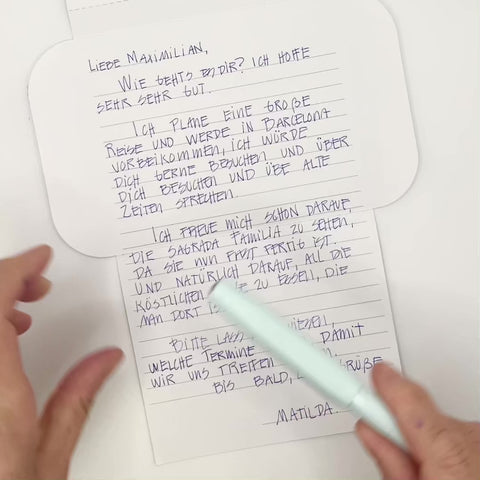 LIEBE MAXIMILIAN,
WIE GEHTS DIR? ICH HOFFE
SEHR SEHR GUT.
ICH PLANE EINE GROßE
REISE UND WERDE IN BARCELONA
VORBEIKOMMEN, ICH WÜRDE
DICH GERNE BESUCHEN UND ÜBER
DICH BESUCHEN UND ÜBE ALTE
ZEITEN SPRECHEN
ICH FREUE MICH SCHON DARAUF,
DIE SAGRADA FAMILIA ZU SEHEN,
DA SIE NUN FAST FERTIG IST.
UND NATÜRLICH DARAUF, ALL DIE
KÖSTLICHEN ZU ESSEN, DIE
MAN DORT
BITTE LASS WISSEN,
WELCHE TERMINE DAMIT
WIR UNS TREFFEN
BIS BALD, GRÜßE
MATILDA.